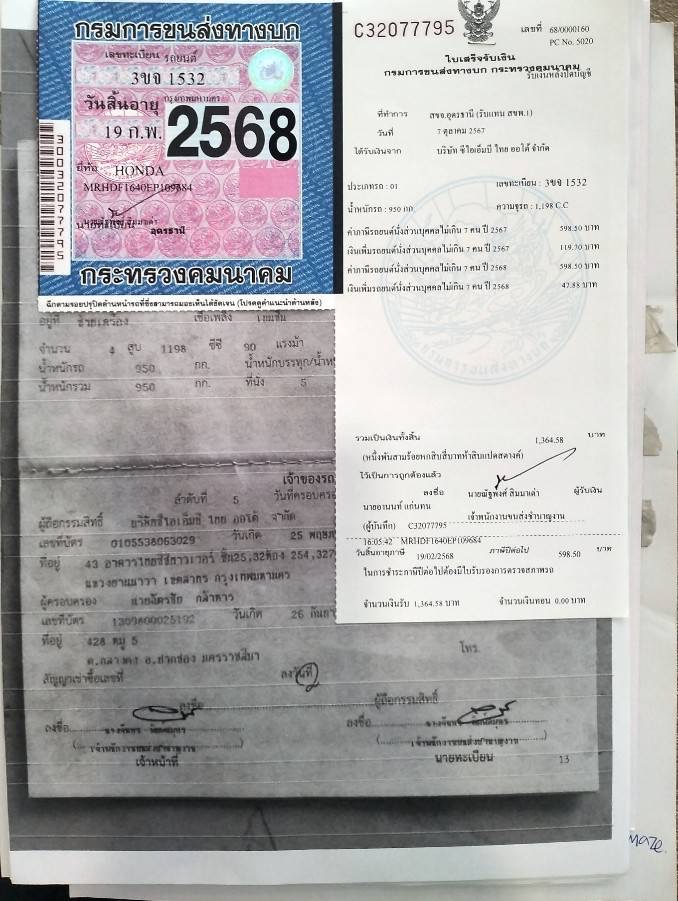 กรมการขนส่งทางบก
เลขทะเบียน รถยนต์
3ขจ 1532
กรุงเทพมหานคร
วันสิ้นอายุ
19 ก.พ. 2568
ยี่ห้อ HONDA
MRHDF1640EP109684
นายทะเบียน
อุดรธานี
30032077795
กระทรวงคมนาคม
C32077795
เลขที่ 68/0000160
PC No. 5020
ใบเสร็จรับเงิน
กรมการขนส่งทางบก กระทรวงคมนาคม
รับเงินหลังปิดบัญชี
ที่ทำการ สขจ.อุดรธานี (รับแทน สขพ.1)
วันที่ 7 ตุลาคม 2567
ได้รับเงินจาก บริษัท ซีไอเอ็มบี ไทย ออโต้ จำกัด
ประเภทรถ : 01 เลขทะเบียน : 3ขจ 1532
น้ำหนักรถ : 950 กก. ความจุรถ : 1,198 C.C
ค่าภาษีรถยนต์นั่งส่วนบุคคลไม่เกิน 7 คน ปี 2567 598.50 บาท
เงินเพิ่มรถยนต์นั่งส่วนบุคคลไม่เกิน 7 คน ปี 2567 119.70 บาท
ค่าภาษีรถยนต์นั่งส่วนบุคคลไม่เกิน 7 คน ปี 2568 598.50 บาท
เงินเพิ่มรถยนต์นั่งส่วนบุคคลไม่เกิน 7 คน ปี 2568 47.88 บาท
รวมเป็นเงินทั้งสิ้น 1,364.58 บาท
(หนึ่งพันสามร้อยหกสิบสี่บาทห้าสิบแปดสตางค์)
ไว้เป็นการถูกต้องแล้ว
ลงชื่อ นายณัฐพงศ์ สิมมาเต่า ผู้รับเงิน
นายอานนท์ แก่นทน เจ้าพนักงานขนส่งชำนาญงาน
(ผู้บันทึก) C32077795
16:05:42 MRHDF1640EP109684
วันสิ้นอายุภาษี 19/02/2568 ภาษีปีต่อไป 598.50 บาท
ในการชำระภาษีปีต่อไปต้องมีใบรับรองการตรวจสภาพรถ
จำนวนเงินรับ 1,364.58 บาท จำนวนเงินทอน 0.00 บาท
ฉีกตามรอยปรุปิดด้านหน้ารถที่ซึ่งสามารถมองเห็นได้ชัดเจน (โปรดดูคำแนะนำด้านหลัง)
อยู่ที่ ซ้ายเครื่อง เชื้อเพลิง เบนซิน
จำนวน 4 สูบ 1198 ซีซี 90 แรงม้า
น้ำหนักรถ 950 กก. น้ำหนักบรรทุก/น้ำห
น้ำหนักรวม 950 กก. ที่นั่ง 5
เจ้าของรถ
ลำดับที่ 5 วันที่ครอบครอ
ผู้ถือกรรมสิทธิ์ บริษัทซีไอเอ็มบี ไทย ออโต้ จำกัด
เลขที่บัตร 0105538063029 วันเกิด 25 พฤษภ
ที่อยู่ 43 อาคารไทยซีซีทาวเวอร์ ชั้น25,32ห้อง 254,327
แขวงยานนาวา เขตสาทร กรุงเทพมหานคร
ผู้ครอบครอง
เลขที่บัตร 1309800025192 วันเกิด 26 กันยา
ที่อยู่ 428 หมู่ 5 โทร.
ต.กลางดง อ.ปากช่อง นครราชสีมา
สัญญาเช่าซื้อเลขที่ ลงวันที่
ผู้ถือกรรมสิทธิ์
ลงชื่อ
ลงชื่อ
ลงชื่อ
(เจ้าพนักงานขนส่งชำนาญงาน)
(เจ้าพนักงานขนส่งชำนาญงาน)
เจ้าหน้าที่ นายทะเบียน 13
maze.